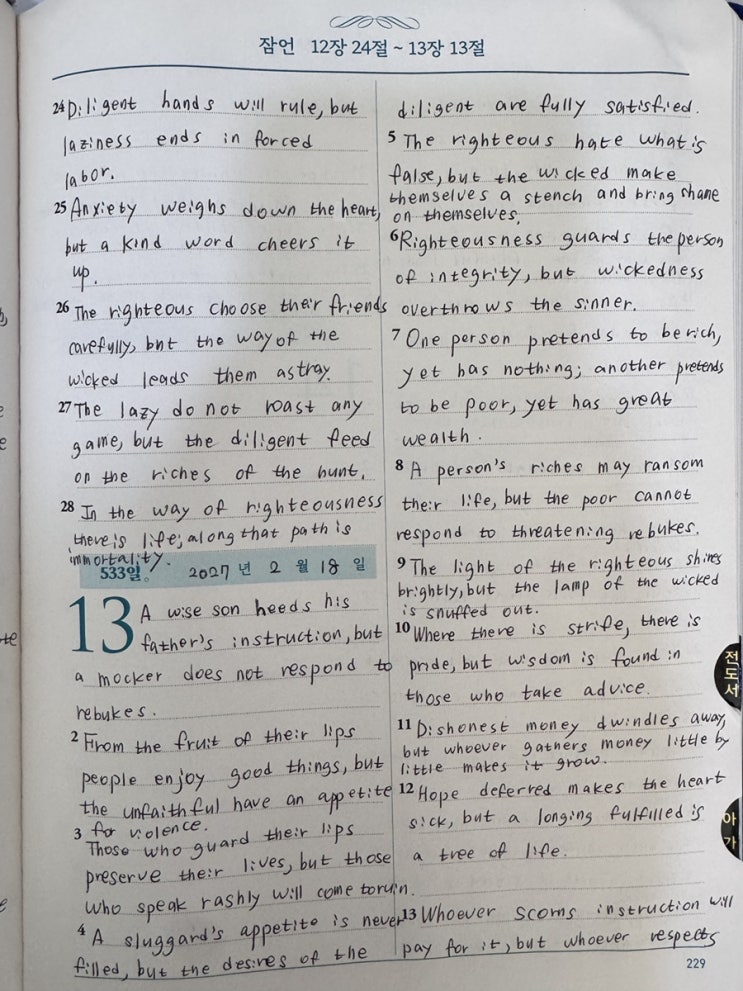 잠언 12장 24절 ~ 13장 13절
24 Diligent hands will rule, but
laziness ends in forced
labor.
25 Anxiety weighs down the heart,
but a kind word cheers it
up.
26 The righteous choose their friends
carefully, but the way of the
wicked leads them astray.
27 The lazy do not roast any
game, but the diligent feed
on the riches of the hunt.
28 In the way of righteousness
there is life; along that path is
immortality.
533일. 2027 년 2 월 18 일
13 A wise son heeds his
father's instruction, but
a mocker does not respond to
rebukes.
2 From the fruit of their lips
people enjoy good things, but
the unfaithful have an appetite
for violence.
3 Those who guard their lips
preserve their lives, but those
who speak rashly will come to ruin.
4 A sluggard's appetite is never
filled, but the desires of the
diligent are fully satisfied.
5 The righteous hate what is
false, but the wicked make
themselves a stench and bring shame
on themselves.
6 Righteousness guards the person
of integrity, but wickedness
overthrows the sinner.
7 One person pretends to be rich,
yet has nothing; another pretends
to be poor, yet has great
wealth.
8 A person's riches may ransom
their life, but the poor cannot
respond to threatening rebukes.
9 The light of the righteous shines
brightly, but the lamp of the wicked
is snuffed out.
10 Where there is strife, there is
pride, but wisdom is found in
those who take advice.
11 Dishonest money dwindles away,
but whoever gathers money little by
little makes it grow.
12 Hope deferred makes the heart
sick, but a longing fulfilled is
a tree of life.
13 Whoever scorns instruction will
pay for it, but whoever respects
전도서
아가
229